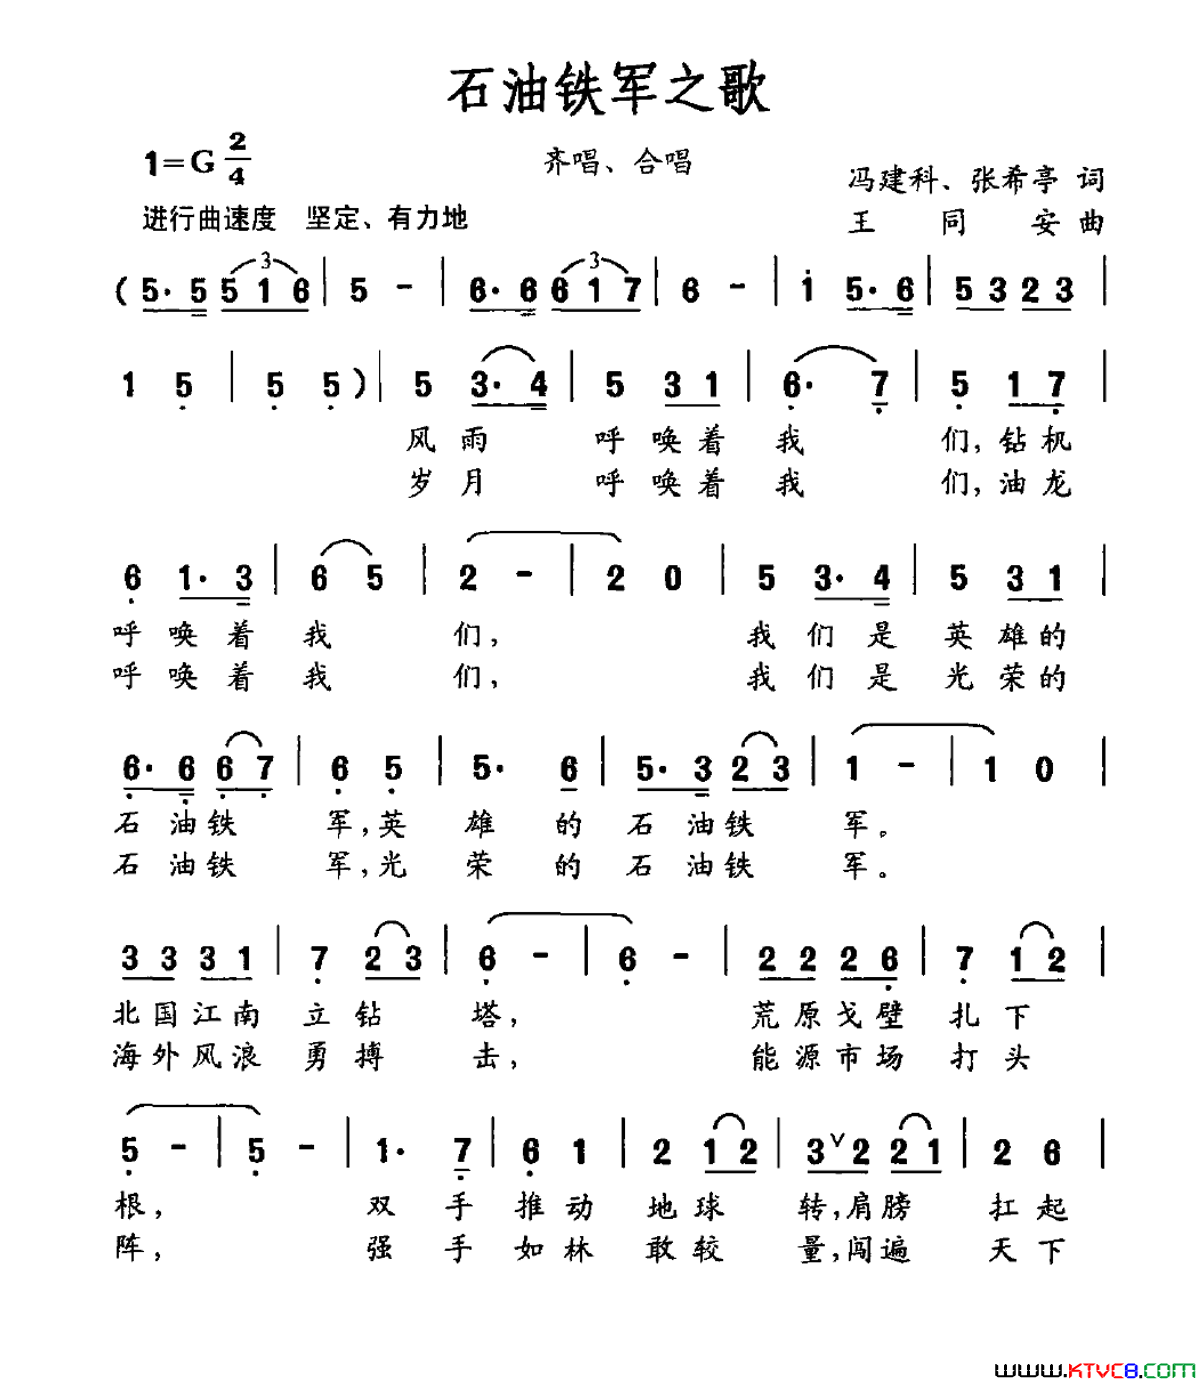 石油铁军之歌
1=G 2/4
齐唱、合唱
冯建科、张希亭 词
进行曲速度 坚定、有力地
王同安曲
( 5· 5 5 1 6 | 5 - | 6· 6 6 1 7 | 6 - | i 5· 6 | 5 3 2 3 |
3 3
1 5 | 5 5 ) | 5 3· 4 | 5 3 1 | 6· 7 | 5 1 7 |
风雨 呼唤着我 们,钻机
岁月 呼唤着我 们,油龙
6 1· 3 | 6 5 | 2 - | 2 0 | 5 3· 4 | 5 3 1 |
呼唤着我 们, 我们是英雄的
呼唤着我 们, 我们是光荣的
6· 6 6 7 | 6 5 | 5· 6 | 5· 3 2 3 | 1 - | 1 0 |
石油铁 军,英 雄 的 石油铁 军。
石油铁 军,光 荣 的 石油铁 军。
3 3 3 1 | 7 2 3 | 6 - | 6 - | 2 2 2 6 | 7 1 2 |
北国江南 立钻 塔, 荒原戈壁 扎下
海外风浪 勇搏 击, 能源市场 打头
5 - | 5 - | 1· 7 | 6 1 | 2 1 2 | 3 ∨ 2 2 1 | 2 6 |
根, 双手推动 地球 转,肩膀 扛起
阵, 强手如林 敢较 量,闯遍 天下
www.KTVC8.COM